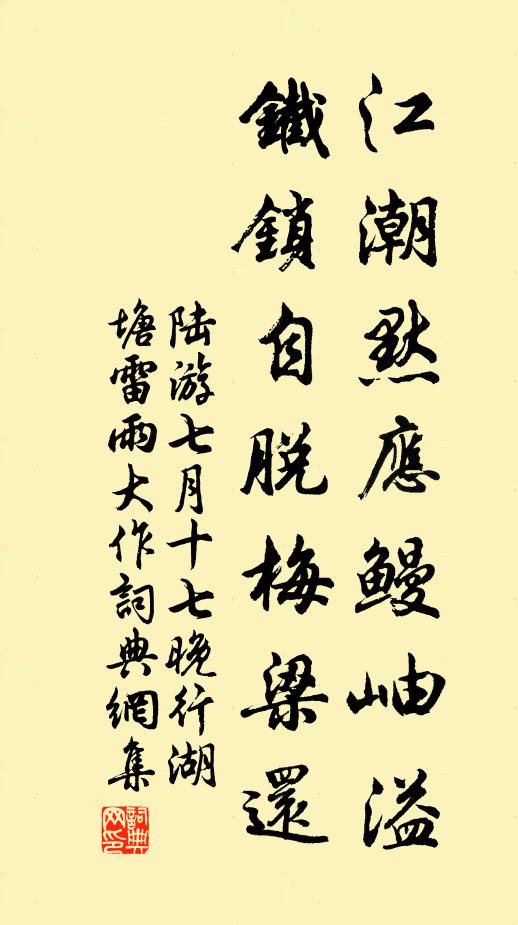 江潮默應鰻岫溢
鐵鎖自脫梅梁還
陆游七月十七晚行湖
塘雷雨大作詞典網集
詞典
网印